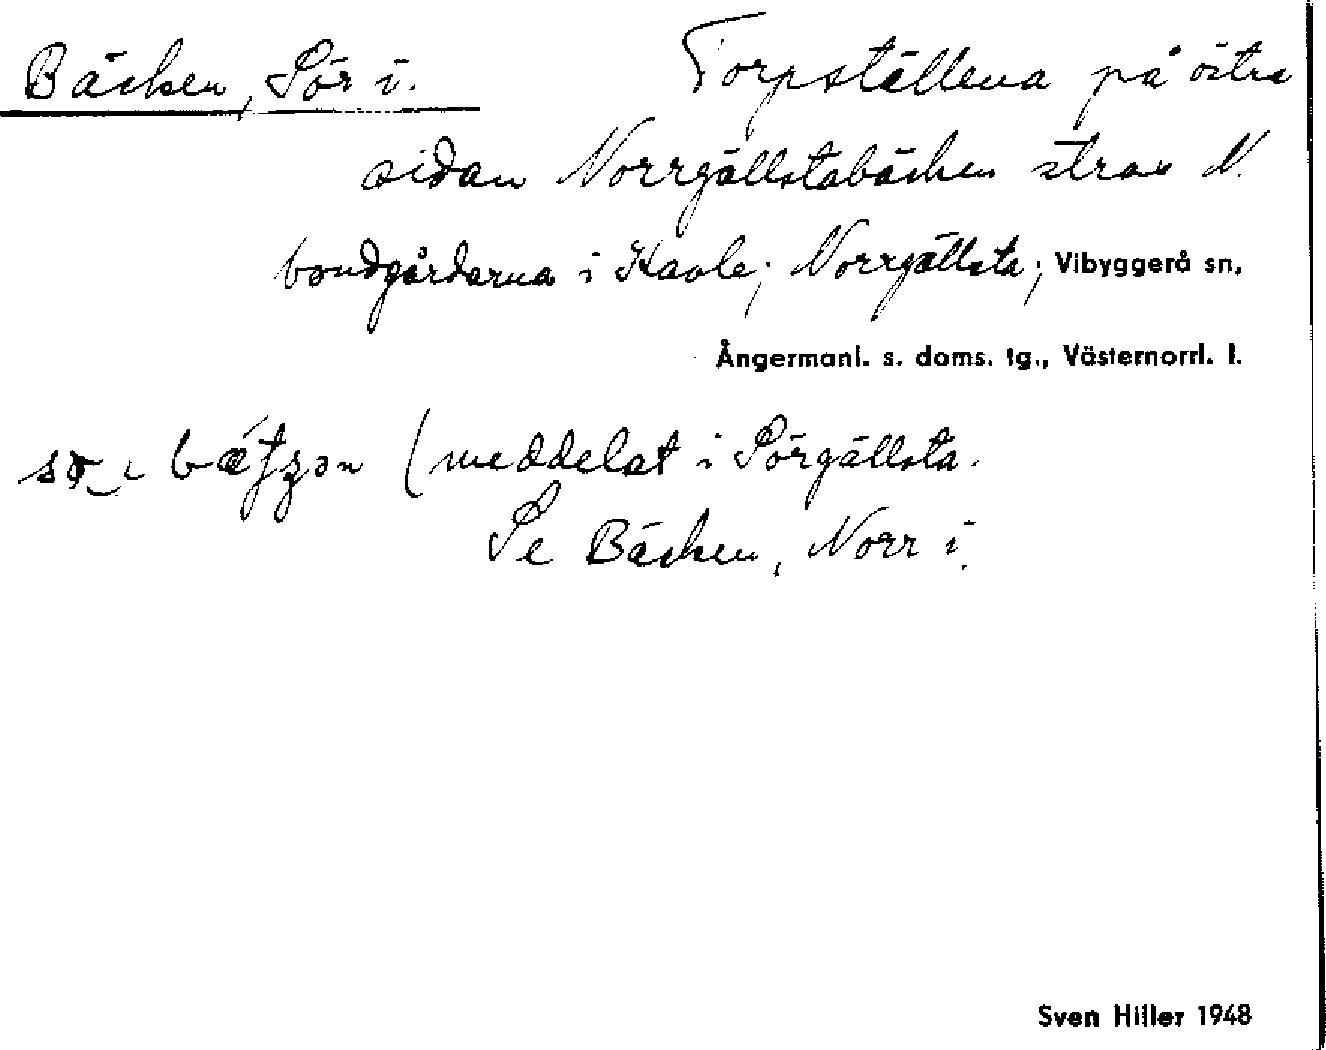 Bäcken, Sör i. Torpställena på östra
sidan Norrgällstabäcken strax N.
bondgårdarna i Kavle; Norrgällsta; Vibyggerå sn,
Ångermanl. s. doms. tg., Västernorrl. l.
(meddelat i Sörgällsta.
Se Bäcken, Norr i.
Sven Hiller 1948